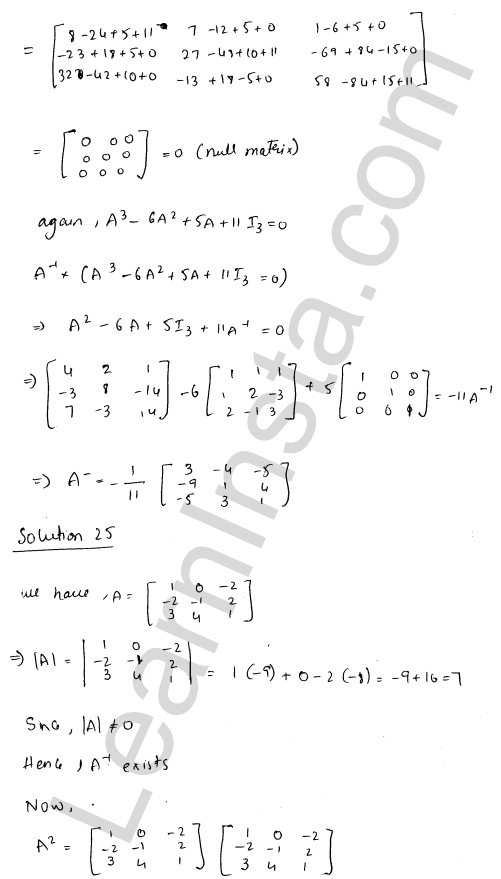 = [ 8-24+5+11 7-12+5+0 1-6+5+0
-23+18+5+0 27-48+10+11 -69+84-15+0
32-42+10+0 -13+18-5+0 58-84+15+11 ]
= [ 0 0 0
0 0 0
0 0 0 ] = 0 (null matrix)
again, A³ - 6A² + 5A + 11 I₃ = 0
A⁻¹ × (A³ - 6A² + 5A + 11 I₃ = 0)
⇒ A² - 6A + 5I₃ + 11A⁻¹ = 0
⇒ [ 4 2 1
-3 8 -14
7 -3 14 ] - 6 [ 1 1 1
1 2 -3
2 -1 3 ] + 5 [ 1 0 0
0 1 0
0 0 1 ] = -11A⁻¹
⇒ A⁻ = - 1/11 [ 3 -4 -5
-9 1 4
-5 3 1 ]
Solution 25
we have, A = [ 1 0 -2
-2 -1 2
3 4 1 ]
⇒ |A| = | 1 0 -2
-2 -1 2
3 4 1 | = 1(-9) + 0 - 2(-8) = -9+16 = 7
Snce, |A| ≠ 0
Hence, A⁻¹ exists
Now,
A² = [ 1 0 -2
-2 -1 2
3 4 1 ] [ 1 0 -2
-2 -1 2
3 4 1 ]
LearnInsta.com